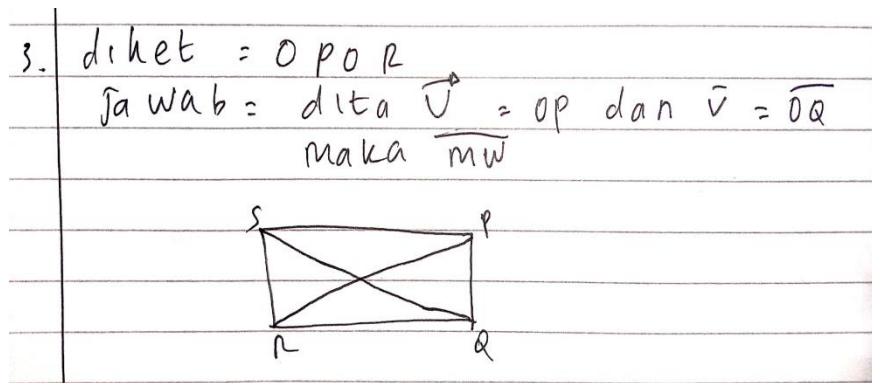 3. diket = O P O R
Jawab = dita U⃗ = OP dan v̄ = O̅Q̅
maka m̅w̅
S P
R Q